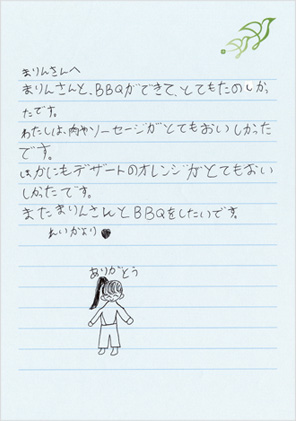 まりんさんへ
まりんさんと、BBQができて、とてもたのしかっ
たです。
わたしは、肉やソーセージがとてもおいしかった
です。
ほかにもデザートのオレンジがとてもおい
しかったです。
またまりんさんとBBQをしたいです。
れいかより
ありがとう